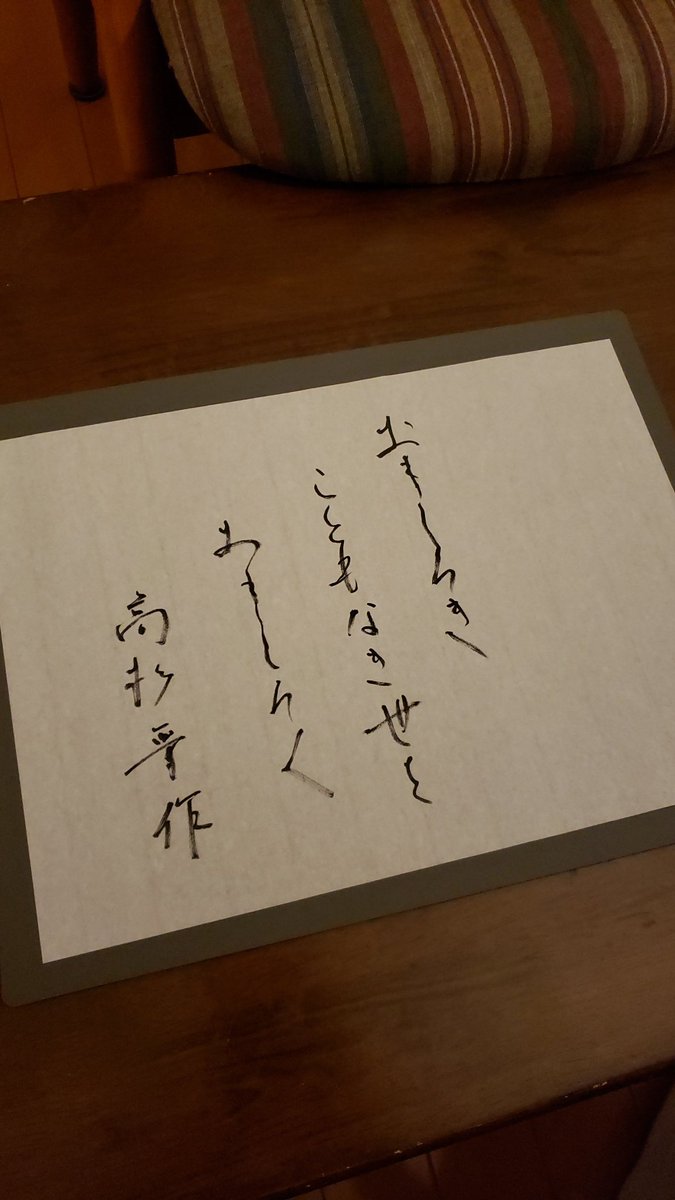 おもしろき
こともなき世を
おもしろく
高杉晋作